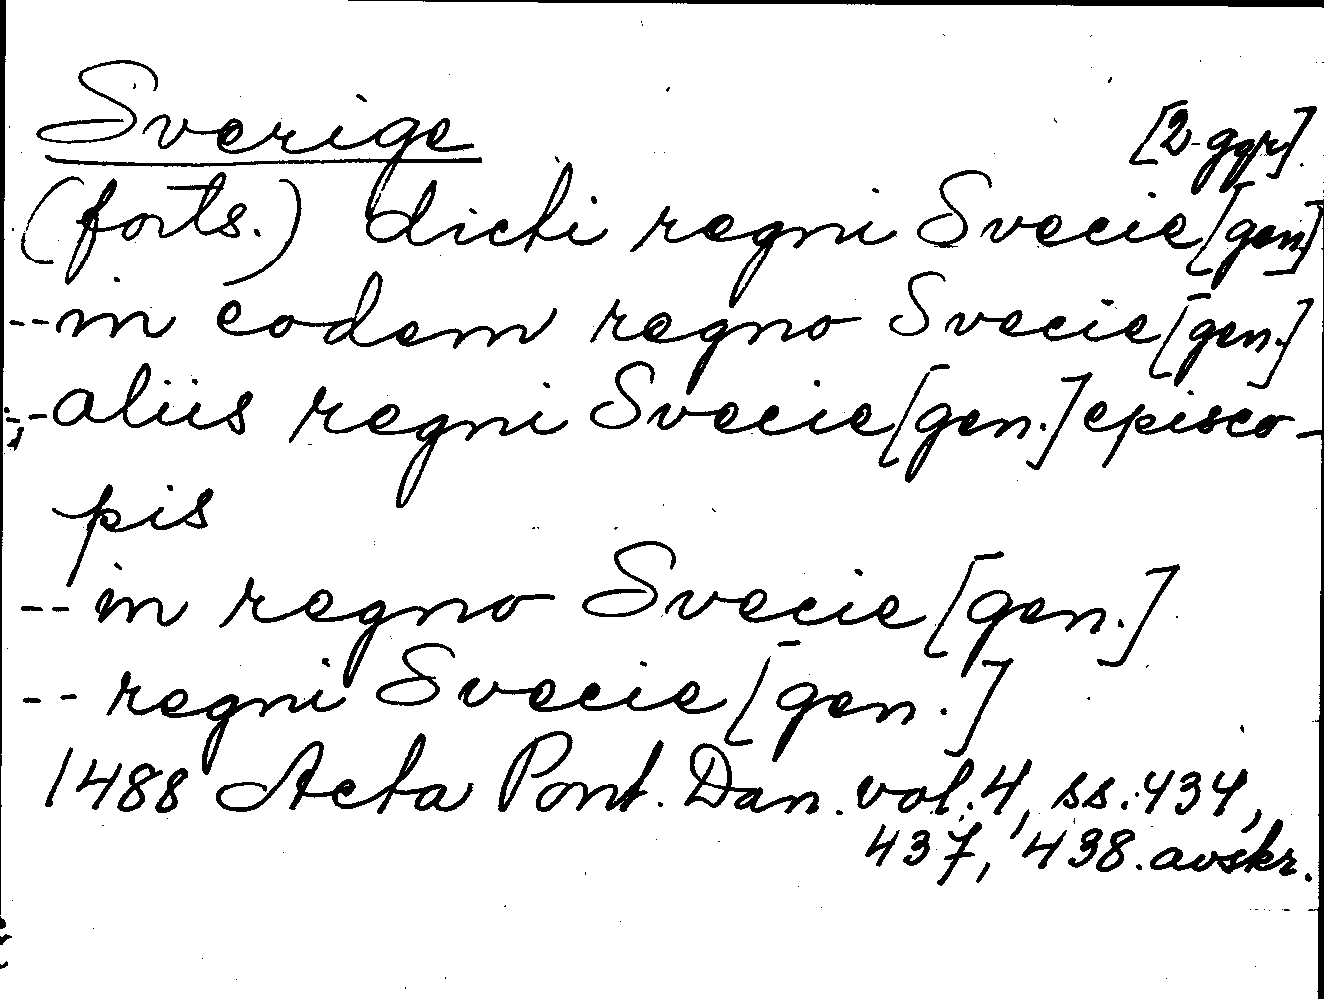 Sverige
[2 ggr]
(forts.) dicti regni Svecie [gen]
-- in eodem regno Svecie [gen.]
-- aliis regni Svecie [gen.] episco-
pis
-- in regno Svecie [gen.]
-- regni Svecie [gen.]
1488 Acta Pont. Dan. vol. 4, ss. 434,
437, 438. avskr.